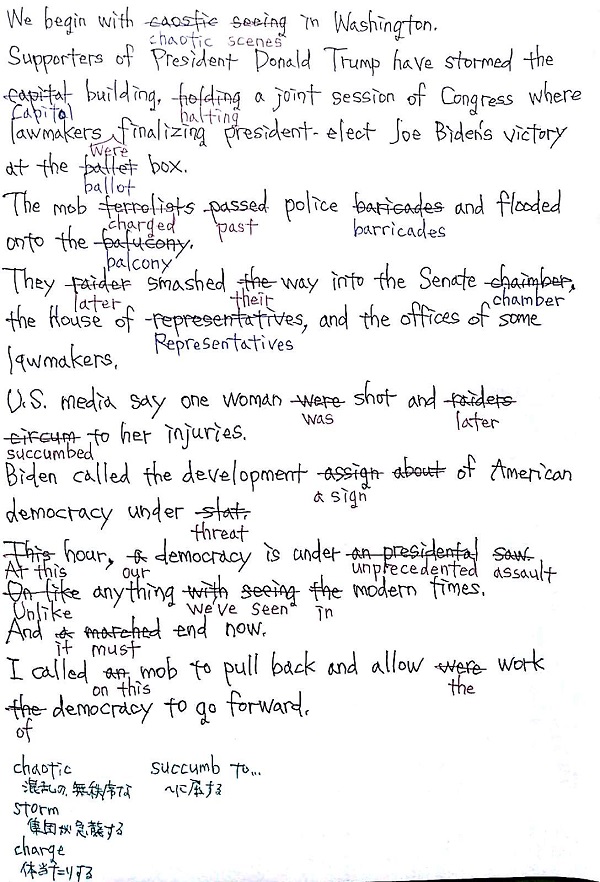 We begin with caostic seeing in Washington.
chaotic scenes
Supporters of President Donald Trump have stormed the
capital building, holding a joint session of Congress where
Capitol halting
lawmakers finalizing president-elect Joe Biden's victory
were
at the ballet box.
ballot
The mob terrolists passed police baricades and flooded
charged past barricades
onto the balucony.
balcony
They raider smashed the way into the Senate chaimber,
later their chamber
the House of representatives, and the offices of some
Representatives
lawmakers.
U.S. media say one woman were shot and raiders
was later
circum to her injuries.
succumbed
Biden called the development assign about of American
a sign
democracy under stat.
threat
This hour, a democracy is under an presidental saw.
At this our unprecedented assault
On like anything with seeing the modern times.
Unlike we've seen in
And a marched end now.
it must
I called an mob to pull back and allow were work
on this the
the democracy to go forward.
of
chaotic succumb to...
混乱の, 無秩序な ~に屈する
storm
集団が急襲する
charge
体当たりする